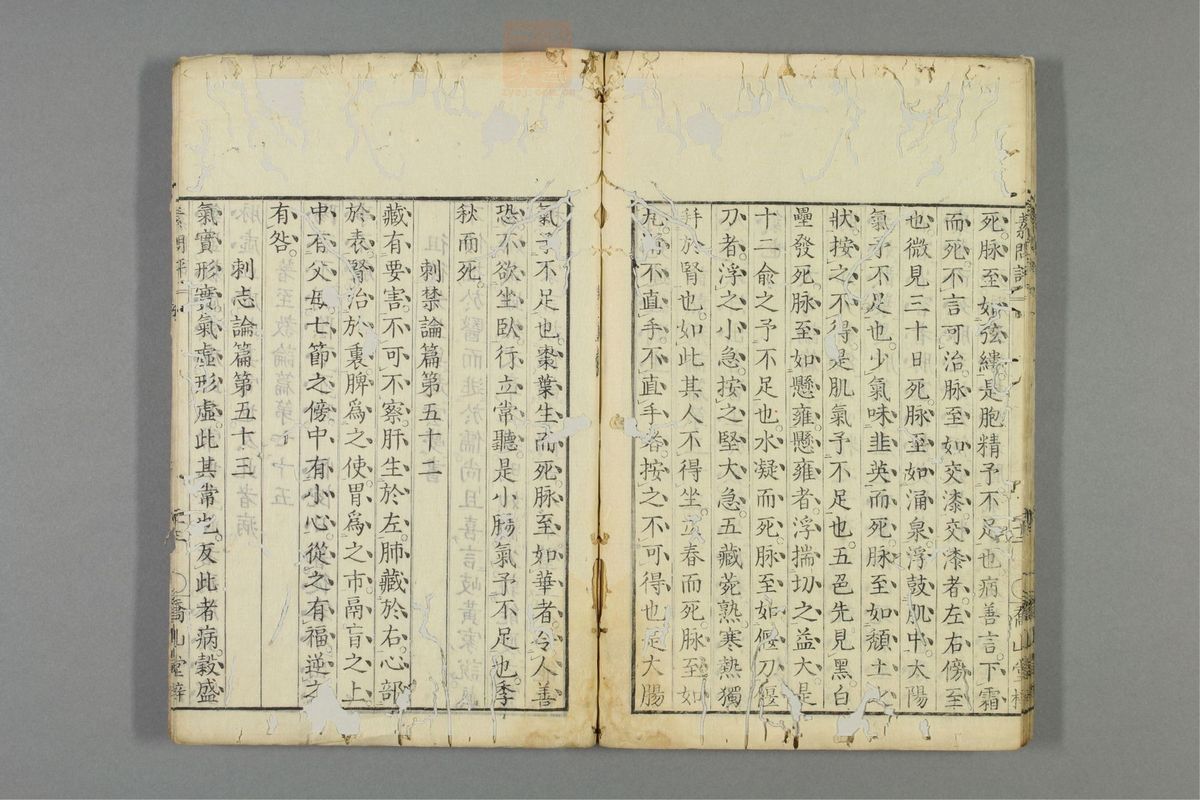 死脉至如弦縷是胞精予不足也病善言下霜
而死不言可治脉至如交漆交漆者左右傍至
也微見三十日死脉至如涌泉浮鼓肌中太陽
氣予不足也少氣味韭英而死脉至如頹土之
狀按之不得是肌氣予不足也五色先見黑白
壘發死脉至如懸雍懸雍者浮揣切之益大是
十二俞之予不足也水凝而死脉至如偃刀偃
刀者浮之小急按之堅大急五藏菀熟寒熱獨
并於腎也如此其人不得坐立春而死脉至如
丸滑不直手不直手者按之不可得也是大腸
氣予不足也棗葉生而死脉至如華者令人善
恐不欲坐臥行立常聽是小腸氣予不足也季
秋而死
刺禁論篇第五十二
藏有要害不可不察肝生於左肺藏於右心部
於表腎治於裏脾爲之使胃爲之市鬲肓之上
中有父母七節之傍中有小心從之有福逆之
有咎
刺志論篇第五十三
氣實形實氣虛形虛此其常也反此者病穀盛